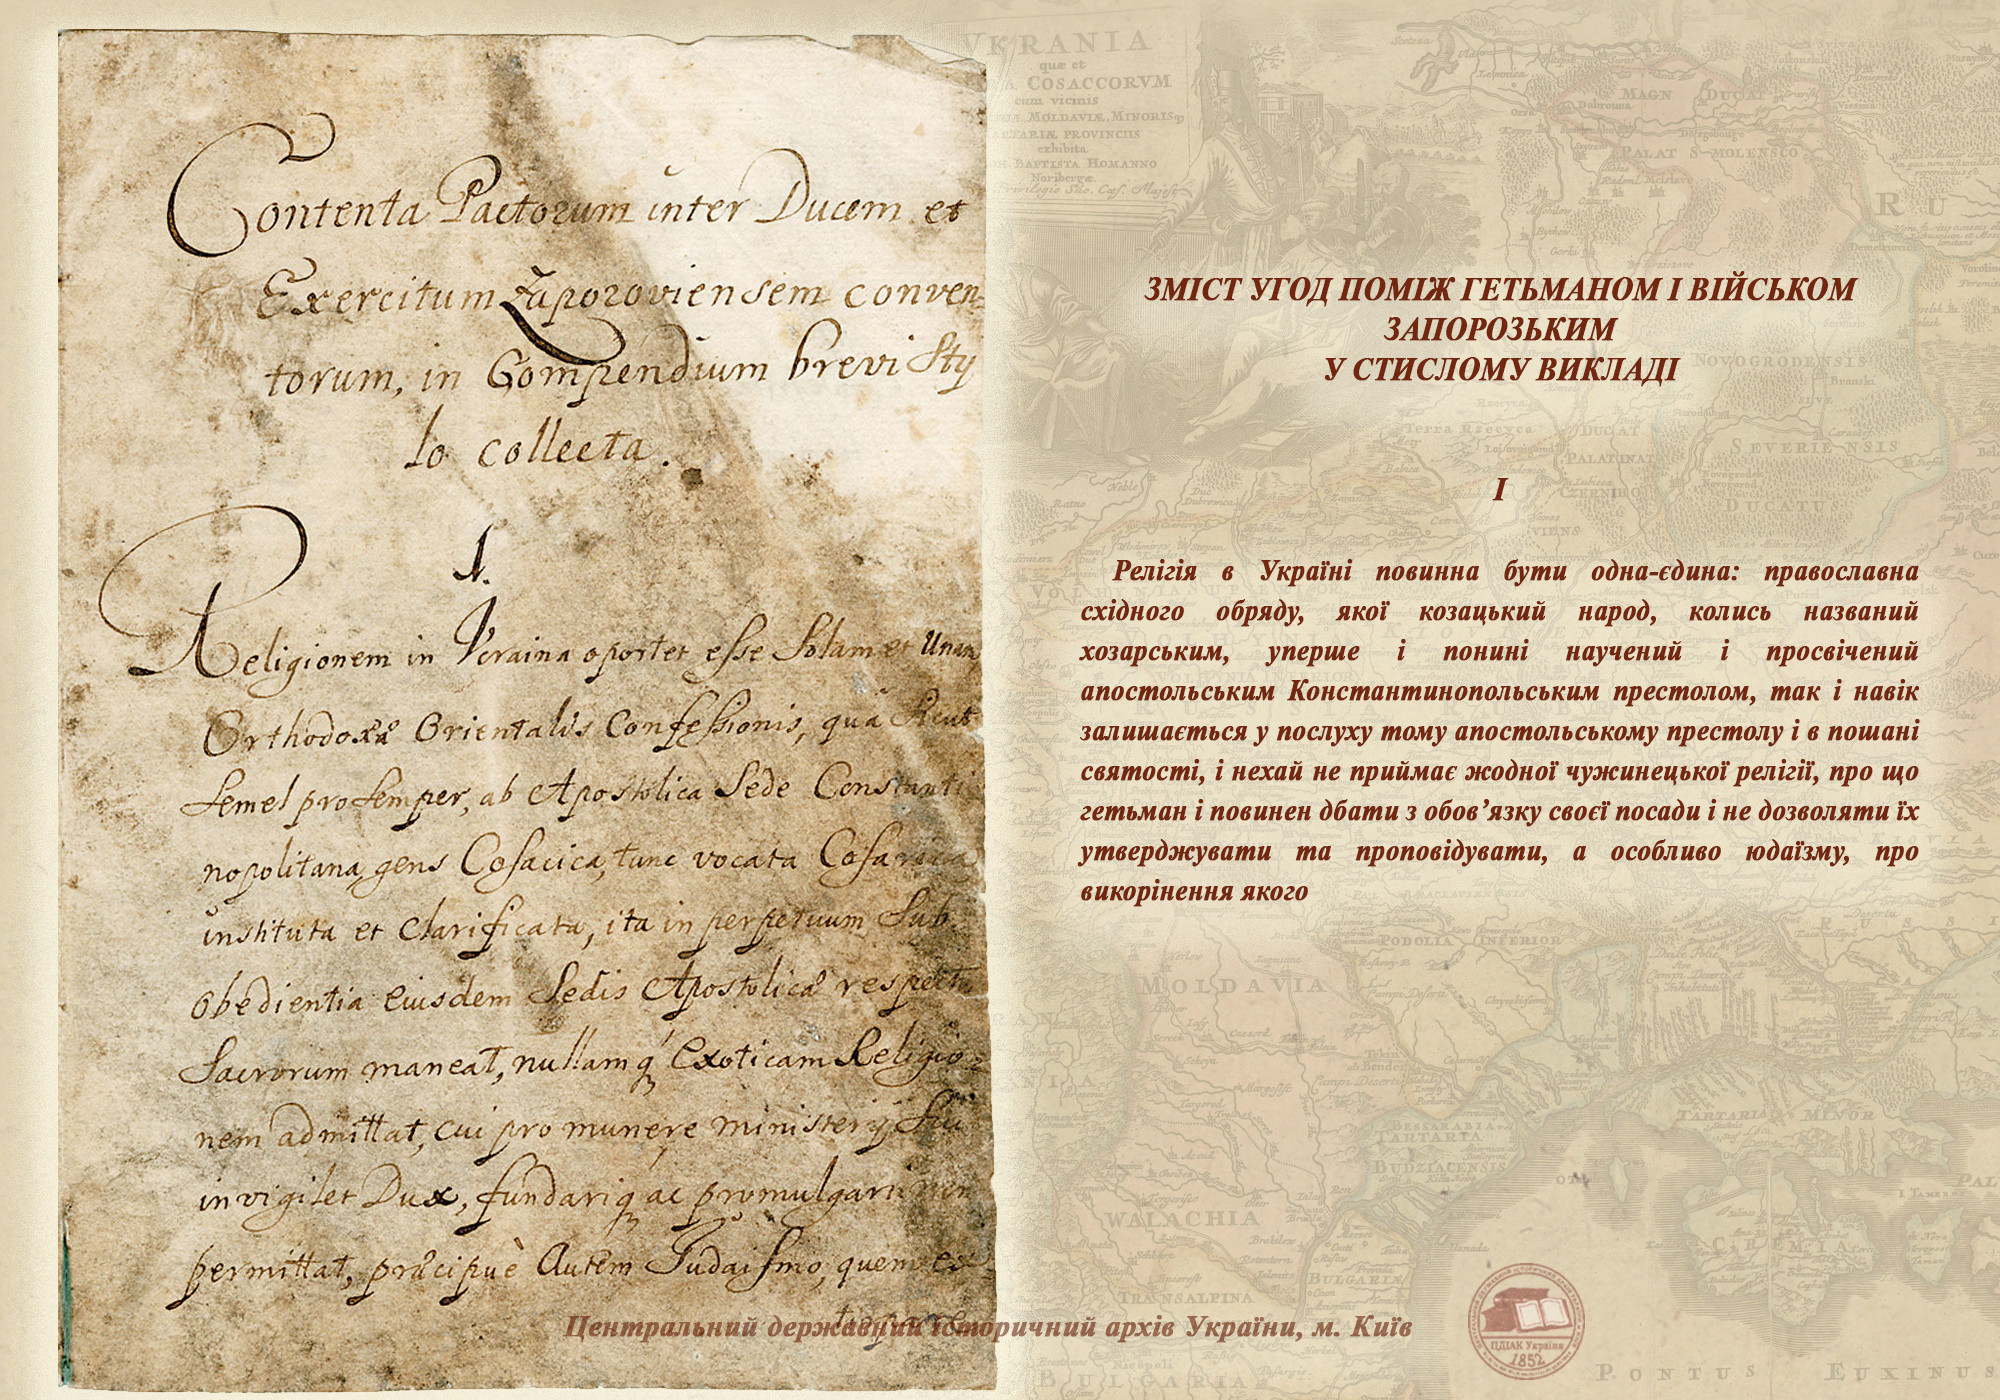 Contenta Pactorum inter Ducem et
Exercitum Zaporoviensem conven-
torum, in Compendium brevi Sty
lo collecta.
1.
Religionem in Vcraina oportet esse Solam et Unam
Orthodoxæ Orientalis Confessionis, quâ Sicut
Semel pro Semper, ab Apostolica Sede Constanti
nopolitana, gens Cosacica, tunc vocata
instituta et clarificata, ita in perpetuum Sub
obedientia eiusdem Sedis Apostolicæ
Sacrorum maneat, nullamq́ Exoticam Religio-
nem admittat, cui pro munere ministerij Sui
invigilet Dux, fundariq́ ac promulgari non
permittat, præcipuè Autem Judaismo, quem
ЗМІСТ УГОД ПОМІЖ ГЕТЬМАНОМ І ВІЙСЬКОМ
ЗАПОРОЗЬКИМ
У СТИСЛОМУ ВИКЛАДІ
I
Релігія в Україні повинна бути одна-єдина: православна
східного обряду, якої козацький народ, колись названий
хозарським, уперше і понині научений і просвічений
апостольським Константинопольським престолом, так і навік
залишається у послуху тому апостольському престолу і в пошані
святості, і нехай не приймає жодної чужинецької релігії, про що
гетьман і повинен дбати з обов’язку своєї посади і не дозволяти їх
утверджувати та проповідувати, а особливо юдаїзму, про
викорінення якого
Центральний державний історичний архів України, м. Київ
ЦДІАК України
1852
VKRANIA
quæ et
COSACCORVM
cum vicinis
MOLDAVIÆ, MINORISq
TARIÆ PROVINCIIS
exhibita
BAPTISTA HOMANNO
Noribergæ
MAGN DUCAT
PALAT SMOLENSCO
RU
NOVOGRODENSIS
SEVERIENSIS
DUCATUS
PODOLIA INFERIOR
MOLDAVIA
TARTARIA MINOR
BESSARABIA
TARTARIA
BUDZIACENSIS
WALACHIA
TRANSALPINA
BULGARIA
CRIMEA
PONTUS EUXINUS